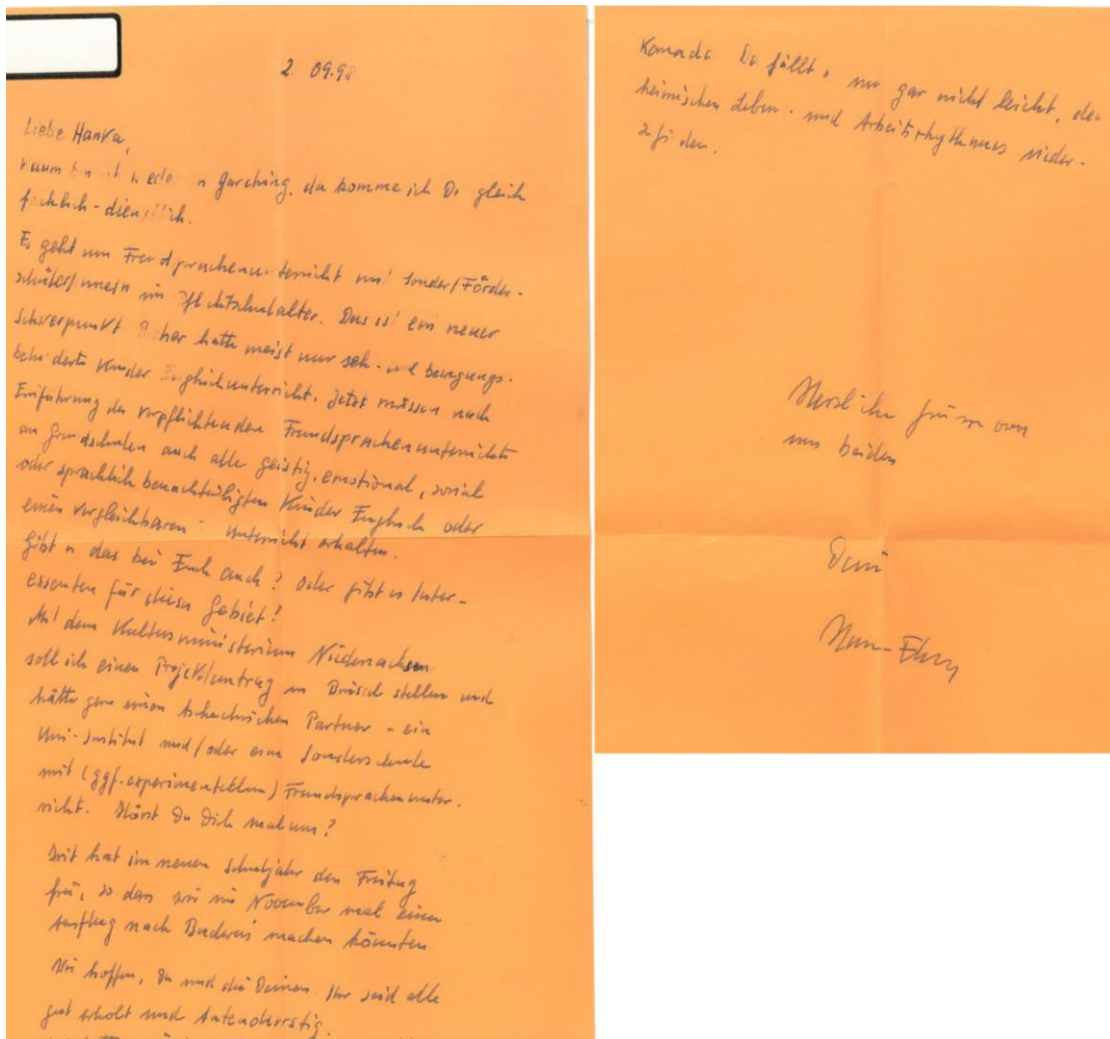 2 09.98
Liebe Hanka,
kaum bin ich wieder in Garching, da komme ich Dir gleich
fachlich-dienstlich.
Es geht um Fremdsprachenunterricht mit Sonder/Förder-
schüler/inne/n im Pflichtschulalter. Das ist ein neuer
Schwerpunkt Bisher hatte meist nur seh- und bewegungs-
behinderte Kinder Englischunterricht. Jetzt müssen nach
Einführung des verpflichtenden Fremdsprachenunterrichts
an Grundschulen auch alle geistig, emotional, sozial
oder sprachlich benachteiligten Kinder Englisch oder
einen vergleichbaren Unterricht erhalten.
Gibt es das bei Euch auch? Oder gibt es Inter-
essenten für dieses Gebiet?
Mit dem Kultusministerium Niedersachsen
soll ich einen Projektantrag in Brüssel stellen und
hätte gern einen tschechischen Partner - ein
Uni-Institut und/oder eine Sonderschule
mit (ggf. experimentellem) Fremdsprachenunter-
richt. Hörst Du Dich mal um?
hat im neuen Schuljahr den Freitag
frei, so dass wir im November mal einen
Ausflug nach machen könnten
Wir hoffen, Du und die Deinen Ihr seid alle
gut erholt und
Komando Es fällt nur gar nicht leicht, den
heimischen Leben- und Arbeitsrhythmus wieder-
zufinden.
Herzliche Grüsse von
uns beiden
Dein